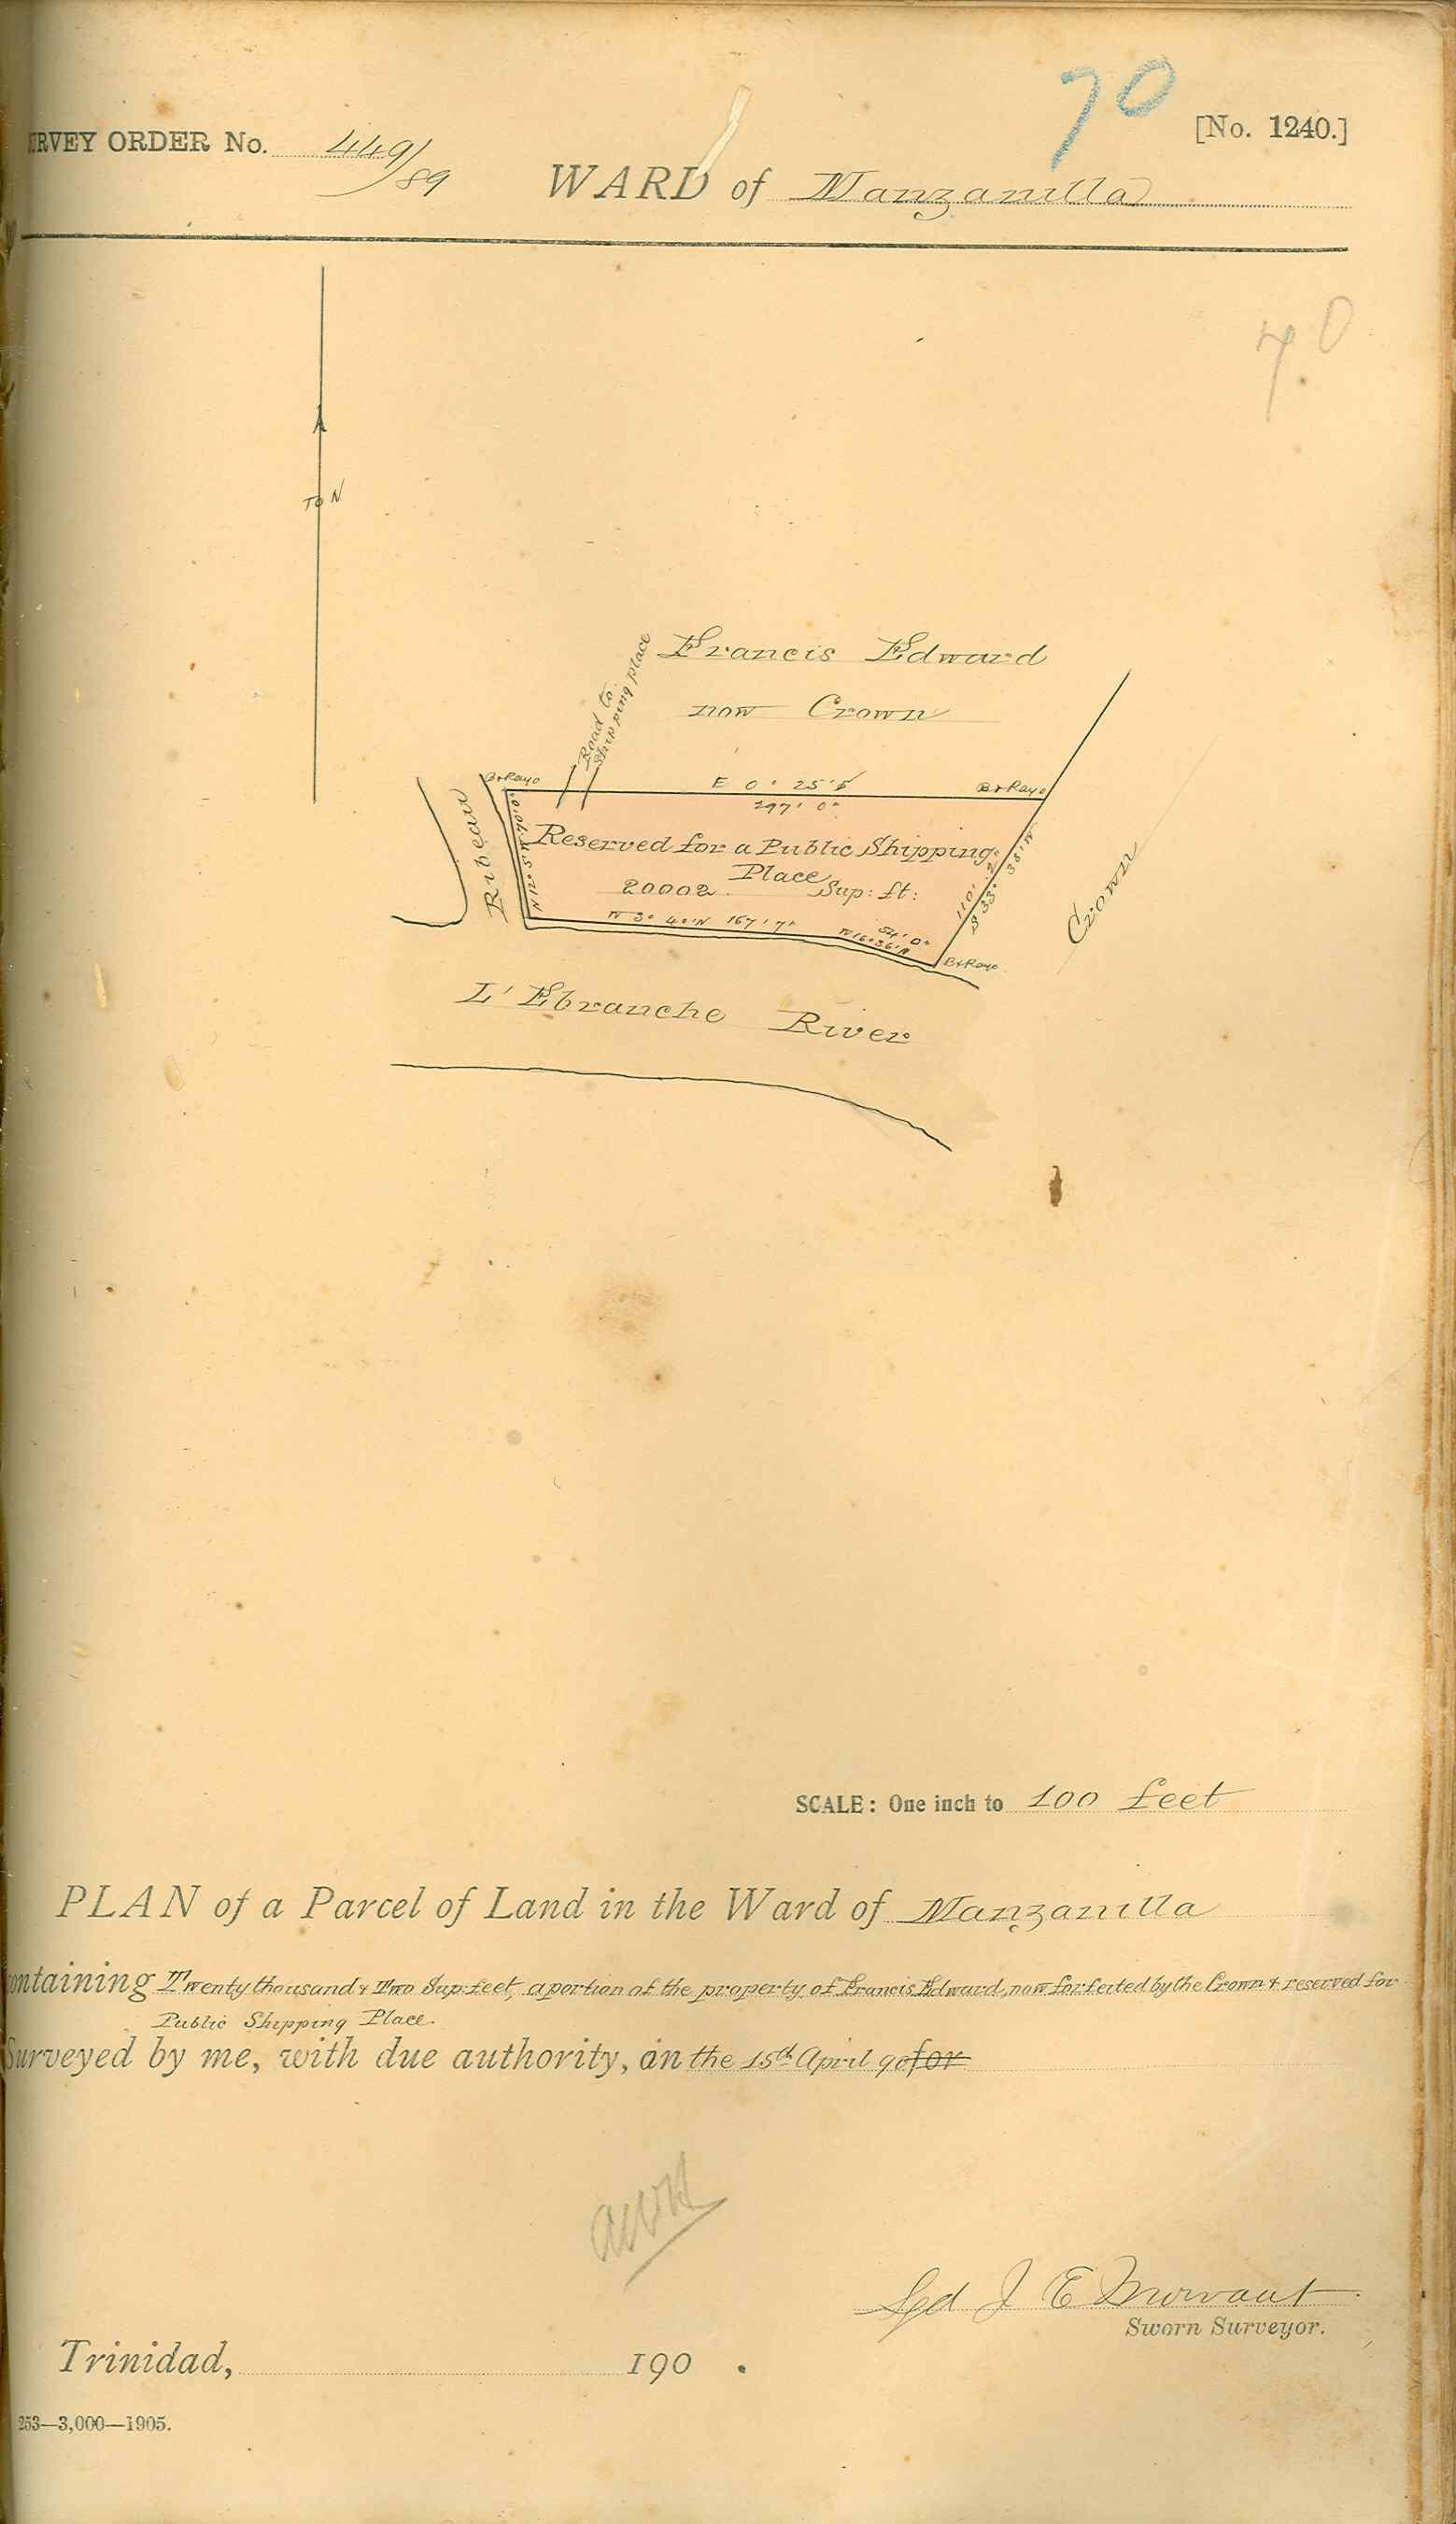 70
[No. 1240.]
RVEY ORDER No. 449/89
WARD of Manzanilla
70
To N
Francis Edward
now Crown
Road to
Shipping place
B+Rayo
E 0° 25' S
B+Rayo
297' 0"
Ribeau
Reserved for a Public Shipping
Place
20002 Sup: ft:
110' 2"
S 33° 38' W
Crown
W 3° 40' N 167' 7"
84' 0"
W 16° 36' N
B+Rayo
L'Ebranche River
SCALE: One inch to 100 feet
PLAN of a Parcel of Land in the Ward of Manzanilla
ontaining Twenty thousand & Two Sup: feet, a portion of the property of Francis Edward, now forfeited by the Crown & reserved for
Public Shipping Place.
Surveyed by me, with due authority, on the 15th April 90 for
Sgd J E
Sworn Surveyor.
Trinidad, 190 .
253—3,000—1905.